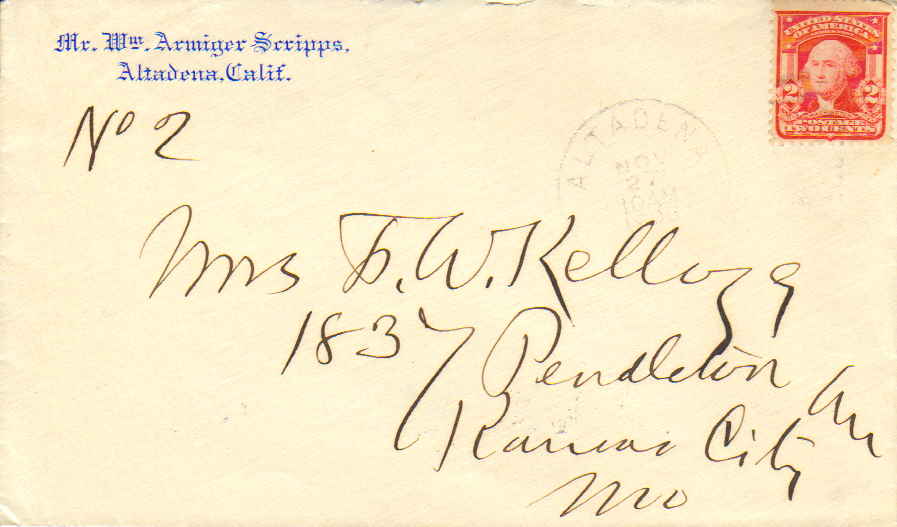 Mr. Wm. Armiger Scripps.
Altadena, Calif.
UNITED STATES
OF AMERICA
2 2
POSTAGE
TWO CENTS
No 2
ALTADENA
NOV
Mrs F. W. Kellogg
1837 Pendleton Av
Kansas City
Mo